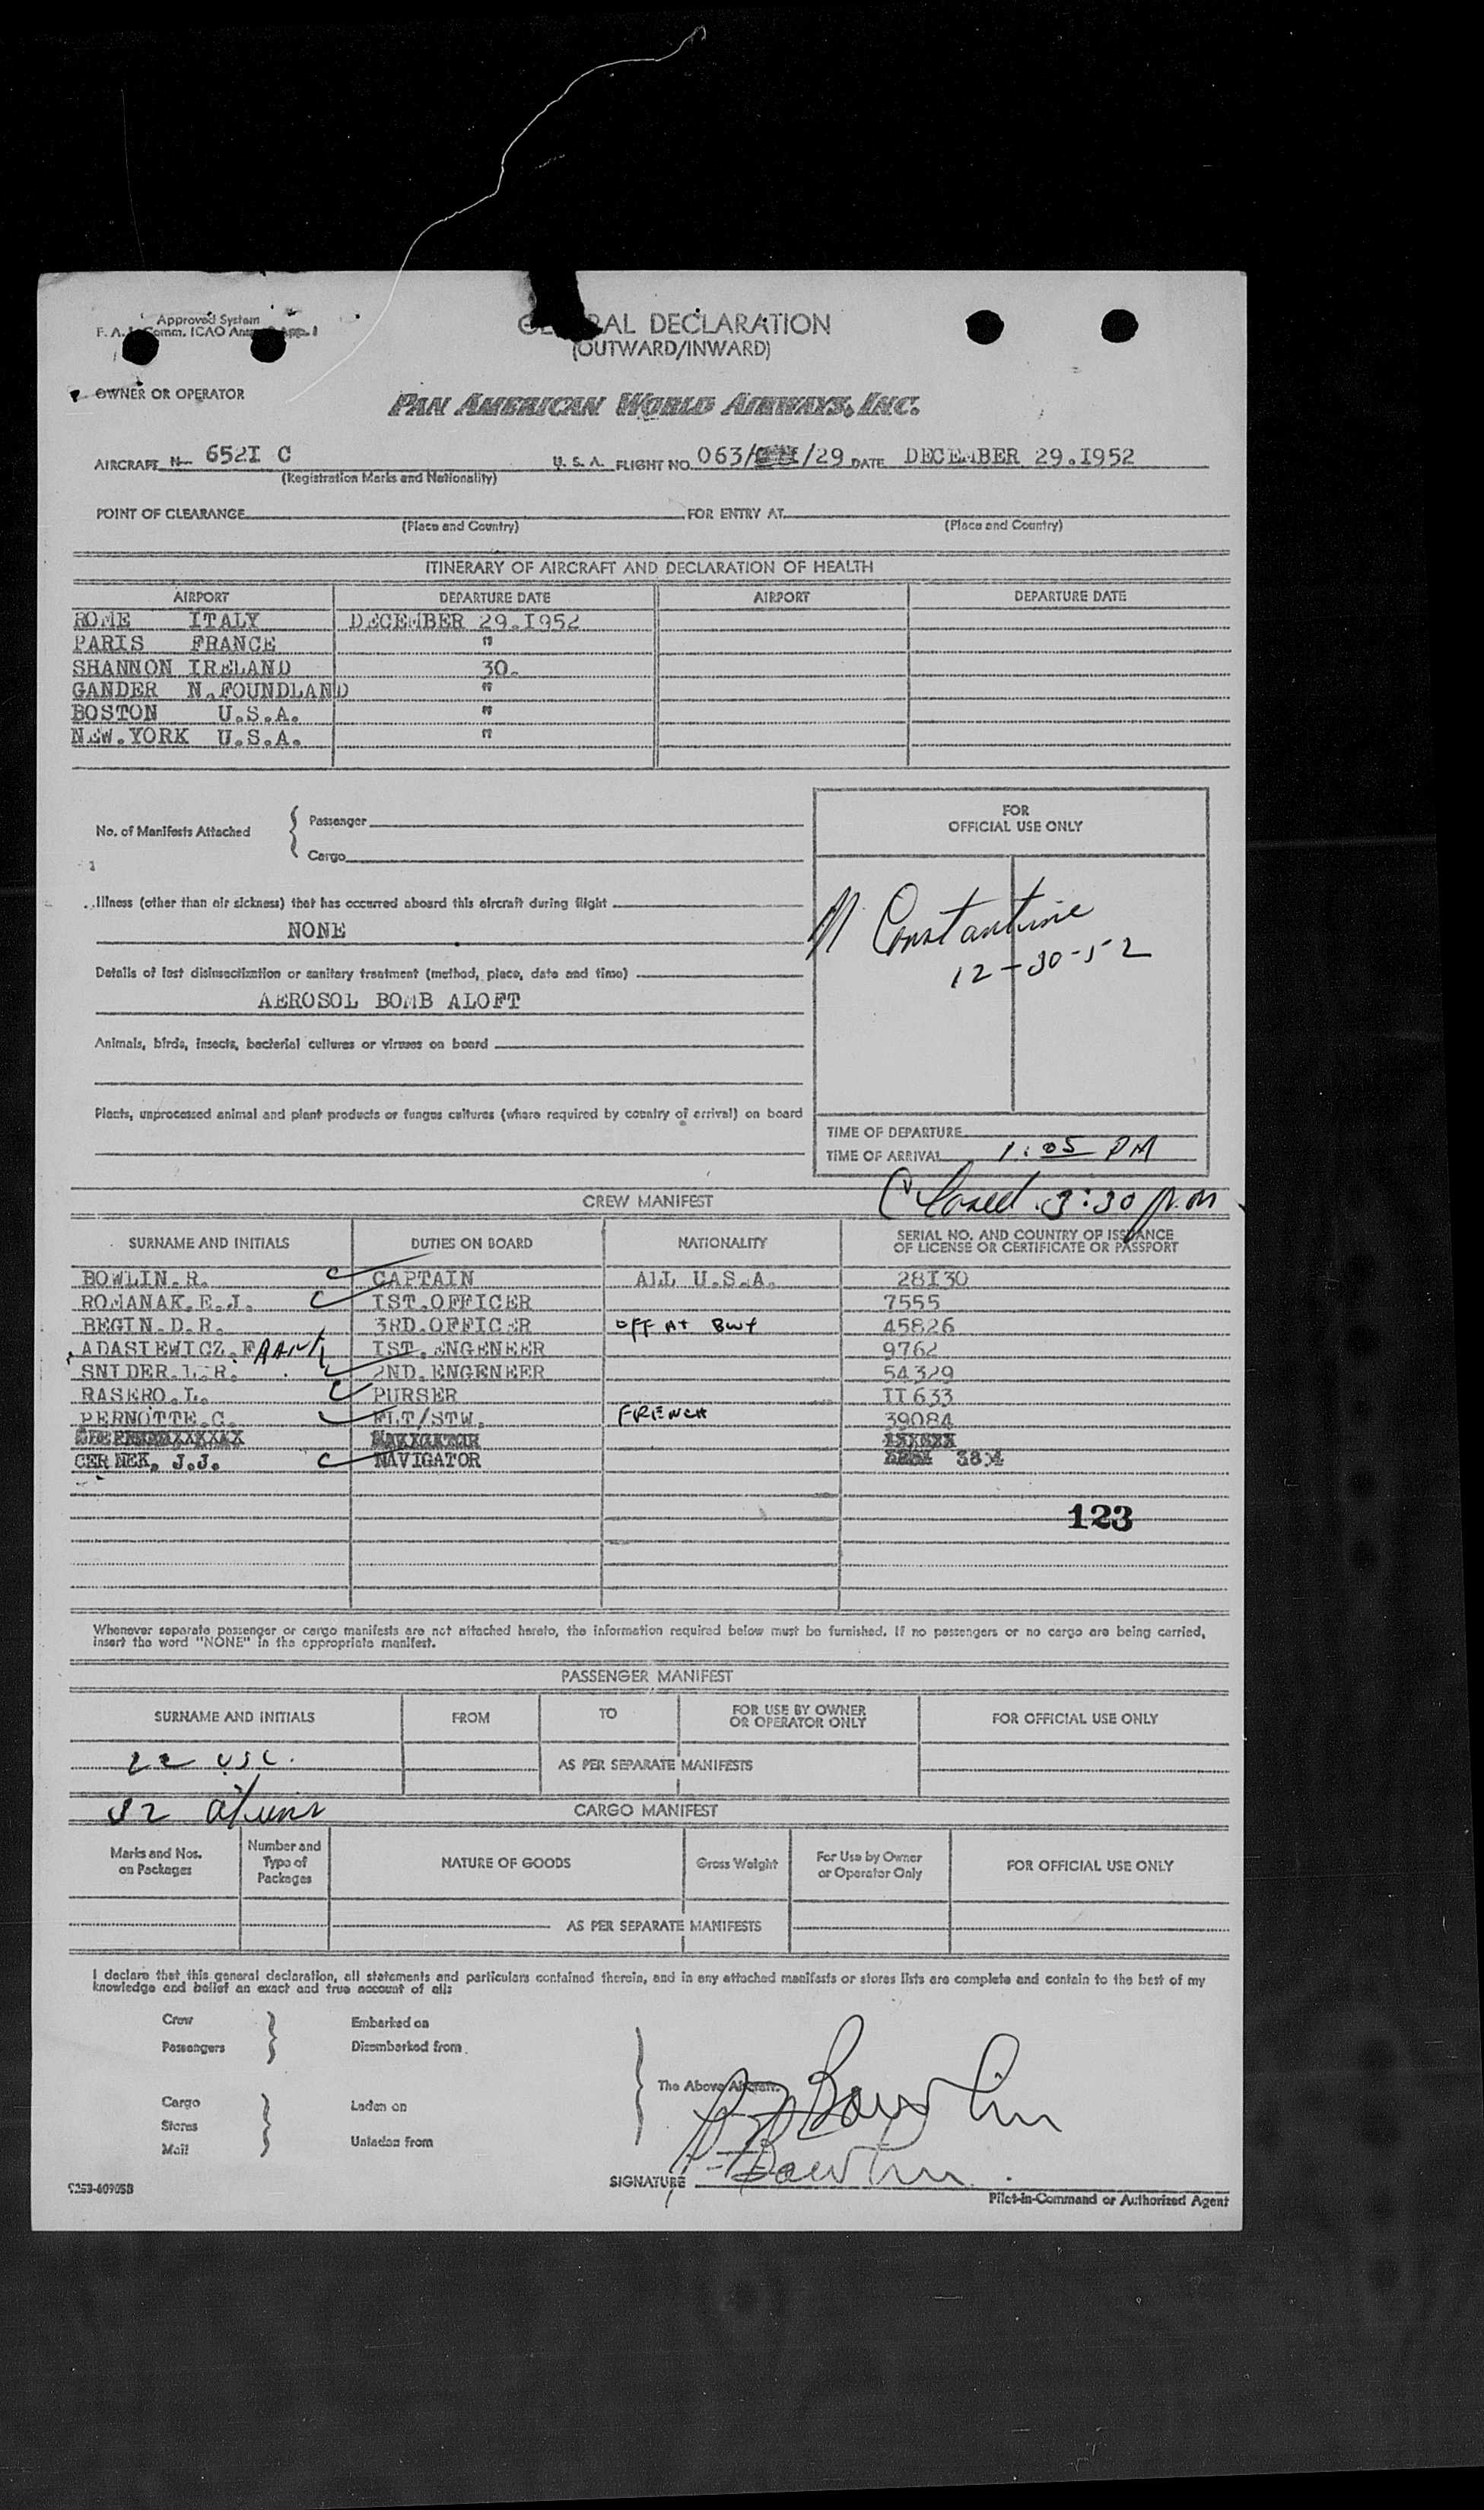 Approved System
F. A. L. Comm. ICAO App. 1
GENERAL DECLARATION
(OUTWARD/INWARD)
OWNER OR OPERATOR
PAN AMERICAN WORLD AIRWAYS, INC.
AIRCRAFT N- 652I C U. S. A. FLIGHT NO. 063/ /29 DATE DECEMBER 29.I952
(Registration Marks and Nationality)
POINT OF CLEARANCE FOR ENTRY AT
(Place and Country) (Place and Country)
ITINERARY OF AIRCRAFT AND DECLARATION OF HEALTH
AIRPORT DEPARTURE DATE AIRPORT DEPARTURE DATE
ROME ITALY DECEMBER 29.I952
PARIS FRANCE "
SHANNON IRELAND 30.
GANDER N.FOUNDLAND "
BOSTON U.S.A. "
NEW.YORK U.S.A. "
No. of Manifests Attached { Passenger
Cargo
FOR
OFFICIAL USE ONLY
Illness (other than air sickness) that has occurred aboard this aircraft during flight
NONE
Constantine
12-30-52
Details of last disinsectization or sanitary treatment (method, place, date and time)
AEROSOL BOMB ALOFT
Animals, birds, insects, bacterial cultures or viruses on board
Plants, unprocessed animal and plant products or fungus cultures (where required by country of arrival) on board
TIME OF DEPARTURE
TIME OF ARRIVAL 1:05 PM
Closed 3:30 p.m.
CREW MANIFEST
SURNAME AND INITIALS DUTIES ON BOARD NATIONALITY SERIAL NO. AND COUNTRY OF ISSUANCE
OF LICENSE OR CERTIFICATE OR PASSPORT
BOWLIN.R. CAPTAIN ALL U.S.A. 28I30
ROMANAK.E.J. IST.OFFICER 7555
BEGIN.D.R. 3RD.OFFICER OFF AT 45826
ADASIEWICZ.FRANK IST.ENGENEER 9762
SNIDER.L.R. 2ND.ENGENEER 54329
RASERO.L. PURSER II633
PERNOTTE.C. FLT/STW. FRENCH 39084
NAVIGATOR
CERNEK, J.J. NAVIGATOR
123
Whenever separate passenger or cargo manifests are not attached hereto, the information required below must be furnished. If no passengers or no cargo are being carried,
insert the word "NONE" in the appropriate manifest.
PASSENGER MANIFEST
SURNAME AND INITIALS FROM TO FOR USE BY OWNER
OR OPERATOR ONLY FOR OFFICIAL USE ONLY
22 USC.
AS PER SEPARATE MANIFESTS
32 aliens
CARGO MANIFEST
Marks and Nos.
on Packages Number and
Type of
Packages NATURE OF GOODS Gross Weight For Use by Owner
or Operator Only FOR OFFICIAL USE ONLY
AS PER SEPARATE MANIFESTS
I declare that this general declaration, all statements and particulars contained therein, and in any attached manifests or stores lists are complete and contain to the best of my
knowledge and belief an exact and true account of all:
Crew Embarked on
Passengers Disembarked from
The Above Aircraft.
Cargo Laden on
Stores
Mail Unladen from
Bowlin
SIGNATURE Bowlin
Pilot-in-Command or Authorized Agent